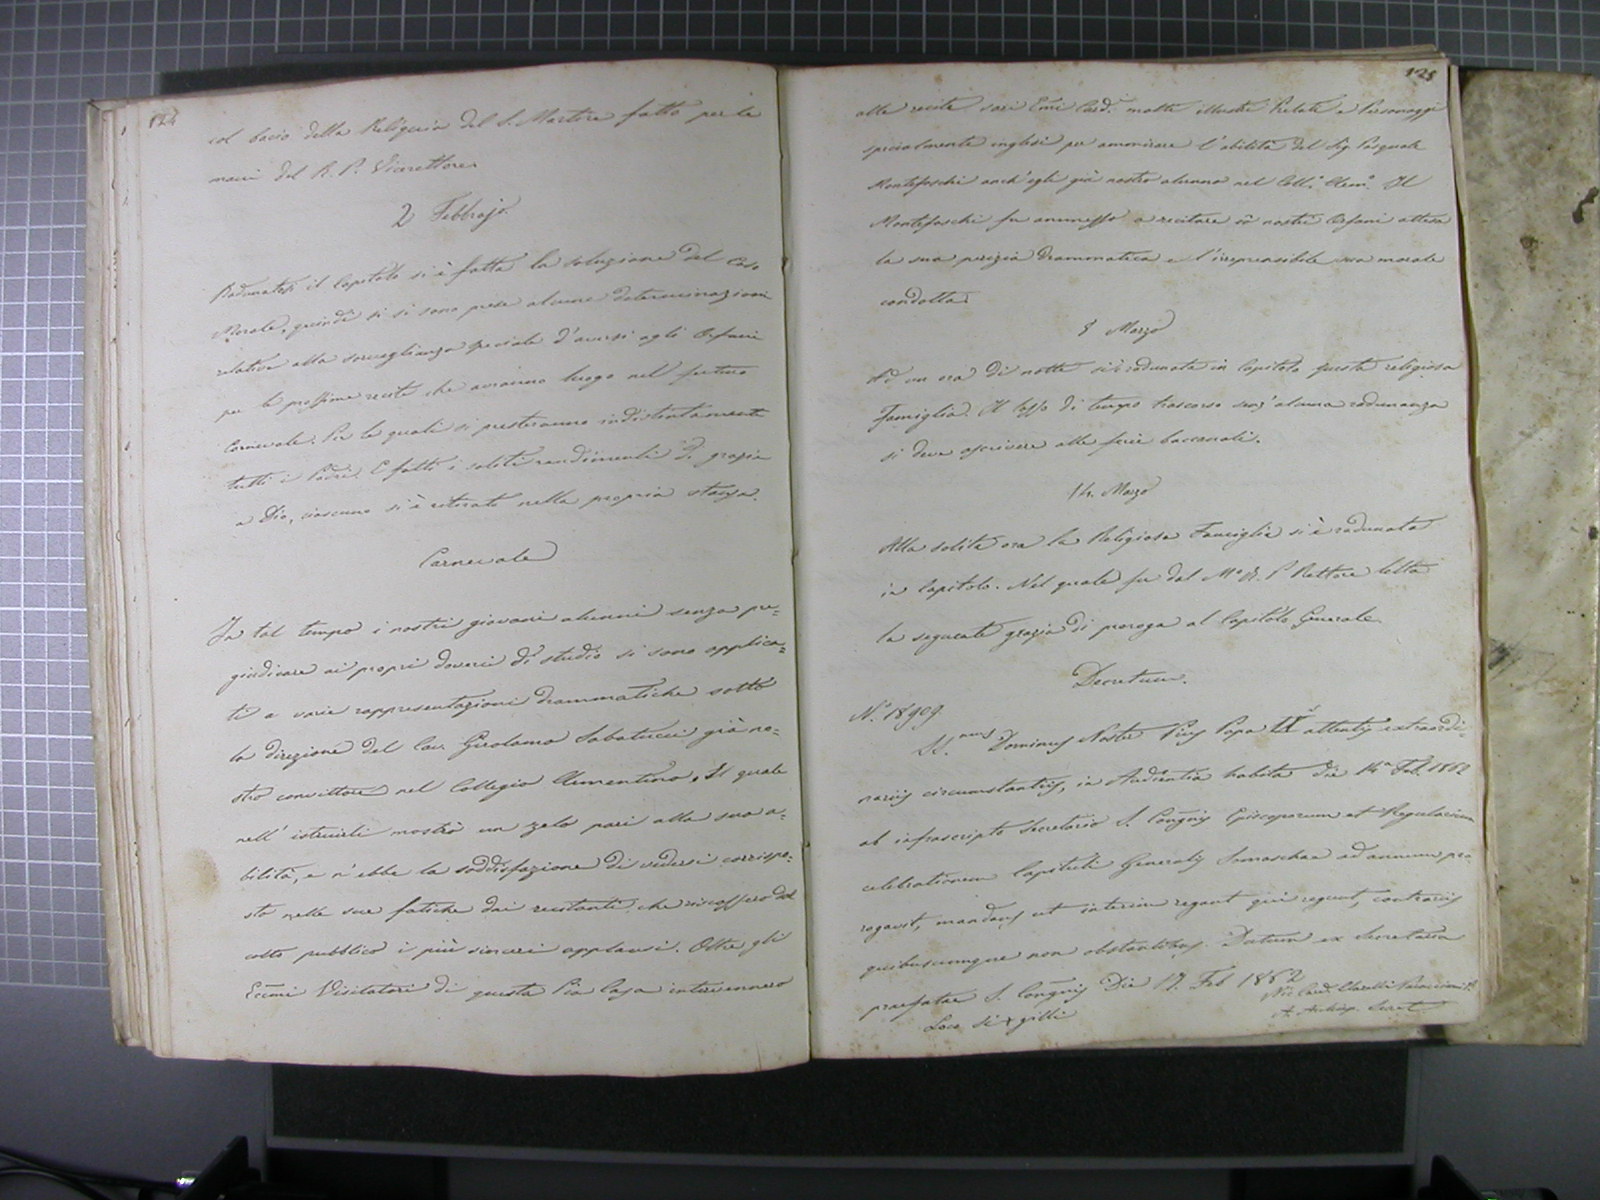 124
col bacio della Religuia del S. Martire fatto per le
mani del R. P. Vicerettore.
2 Febbrajo.
Radunatosi il Capitolo si è fatta la soluzione del Caso
Morale, quindi si si sono prese alcune determinazioni
relative alla sorveglianza speciale d'aversi agli Orfani
per le prossime recite che avranno luogo nel futuro
Carnevale. Per le quali si presteranno indistintamente
tutti i Padri. E fatti i soliti rendimenti di grazie
a Dio, ciascuno si è ritirato nella propria stanza.
Carnevale
In tal tempo i nostri giovani alunni senza pre=
giudicare ai propri doveri di studio si sono applica=
ti a varie rappresentazioni drammatiche sotto
la direzione del Cav. Girolamo Sabatucci già no=
stro convittore nel Collegio Clementino. Il quale
nell' istruirli mostrò un zelo pari alla sua a=
bilità, e n' ebbe la soddisfazione di vedersi corrispo=
sto nelle sue fatiche dai recitanti, che riscossero dal
colto pubblico i più sinceri applausi. Oltre gli
Eccmi Visitatori di questa Pia Casa intervennero
125
alle recite vari Emi Card. molti illustri Prelati e Personaggi
specialmente inglesi per ammirare l'abilità del Sig. Pasquale
Montefoschi anch'egli già nostro alunno nel Coll.º Clem.º Il
Montefoschi fu ammesso a recitare co' nostri Orfani attesa
la sua perizia drammatica e l'irreprensibile sua morale
condotta.
8 Marzo
Ad un ora di notte si è radunata in Capitolo questa religiosa
Famiglia. Il lasso di tempo trascorso senz'alcuna radunanza
si deve ascrivere alle ferie baccanali.
14. Marzo
Alla solita ora la Religiosa Famiglia si è radunata
in Capitolo. Nel quale fu dal M.º R. P. Rettore letta
la seguente grazia di proroga al Capitolo Generale.
Decretum.
N.º 18909.
SS.mus Dominus Noster Pius Papa IX attentis extraordi=
nariis circumstantiis, in Audientia habita die 14ª Feb. 1862
ab infrascripto Secretario S. Congnis Episcoporum et Regularium
celebrationem Capituli Generalis Somaschae ad annum pro
rogavit, mandans ut interim regant qui regunt, contrariis
quibuscumque non obstantibus. Datum ex Secretaria
praefatae S. Congnis Die 17. Feb 1862
Loco Si+gilli
Nic. Card. Clarelli Paracciani P.
A. Archiep. Secret.